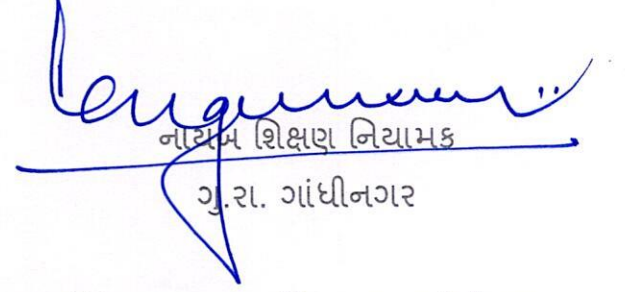 નાયબ શિક્ષણ નિયામક
ગુ.રા. ગાંધીનગર